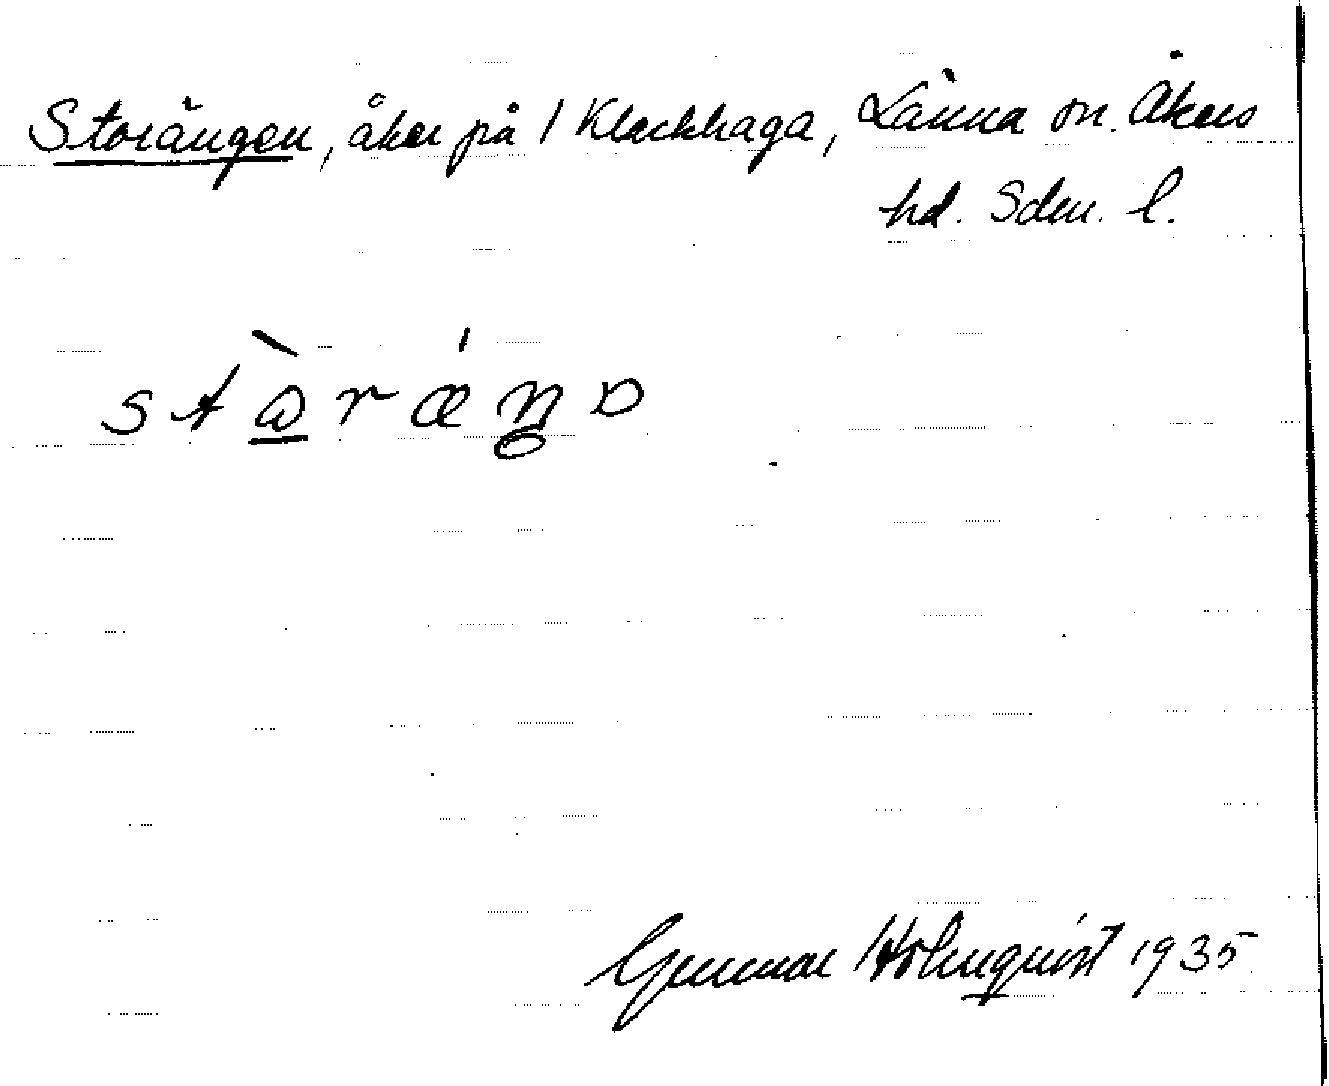 Storängen, åker på 1 Klackhaga, Länna sn. Åkers
hd. Sdm. l.
Gunnar Holmquist 1935